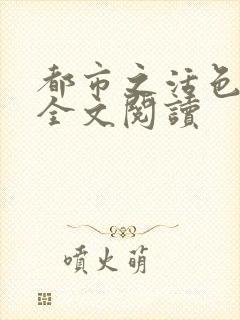 都市之活色
全文閱讀
噴火萌